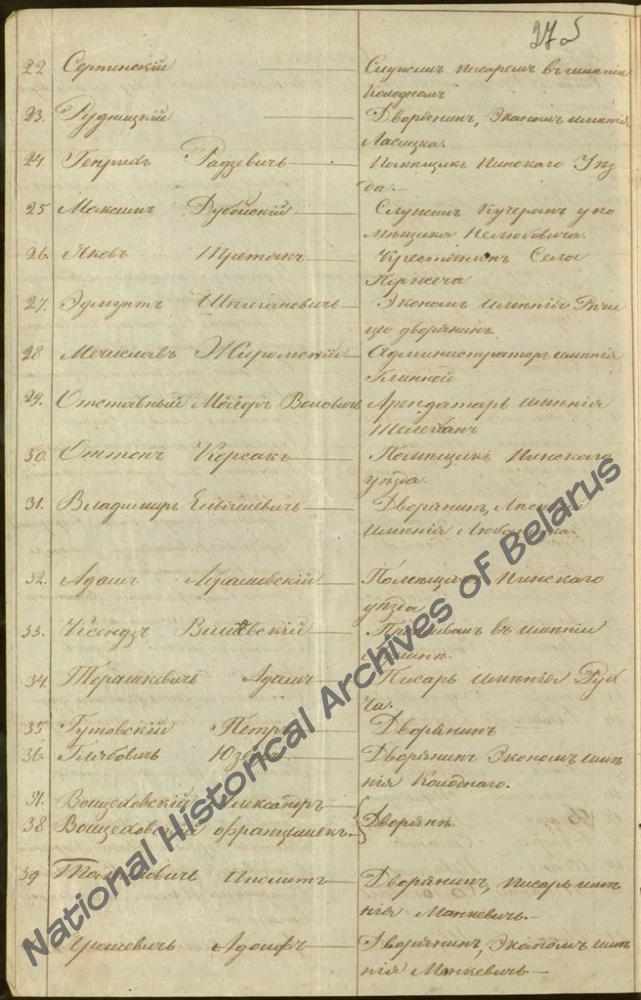 22. Сертинскій Служилъ писаремъ въ имѣніи
Колодномъ
23. Рудницкій Дворянинъ, Экономъ имѣнія
Ласицка.
24. Генрихъ Радзевичъ Помѣщикъ Пинскаго Уѣз
да.
25 Максимъ Дубойскій Служилъ Кучеромъ у по
мѣщика
26. Яковъ Третякъ Крестьянинъ Села
27. Эдмунтъ Экономъ имѣнія Рѣчи
цы дворянинъ.
28 Мечиславъ Жиромскій Администраторъ имѣнія
Глинной
29. Отставный Маіоръ Воловичъ Арендаторъ имѣнія
Телеханъ
30. Оттонъ Корсакъ Помѣщикъ Пинскаго
уѣзда.
31. Владимиръ Дворянинъ,
имѣнія
32. Адамъ Абрамовскій Помѣщикъ Пинскаго
уѣзда
33. Ксендзъ въ имѣніи
34. Терашкевичъ Адамъ Писарь имѣнія
ча.
35. Гутовскій Петръ Дворянинъ
36. Глябовичъ Дворянинъ Экономъ имѣ
нія Колоднаго.
37. Войцеховскій Александръ
38 Войцеховскій Францишекъ Дворяне.
39 Иполитъ Дворянинъ, писарь имѣ
нія Манкевичъ.
Адольфъ Дворянинъ, Экономъ имѣ
нія Манкевичъ
National Historical Archives of Belarus